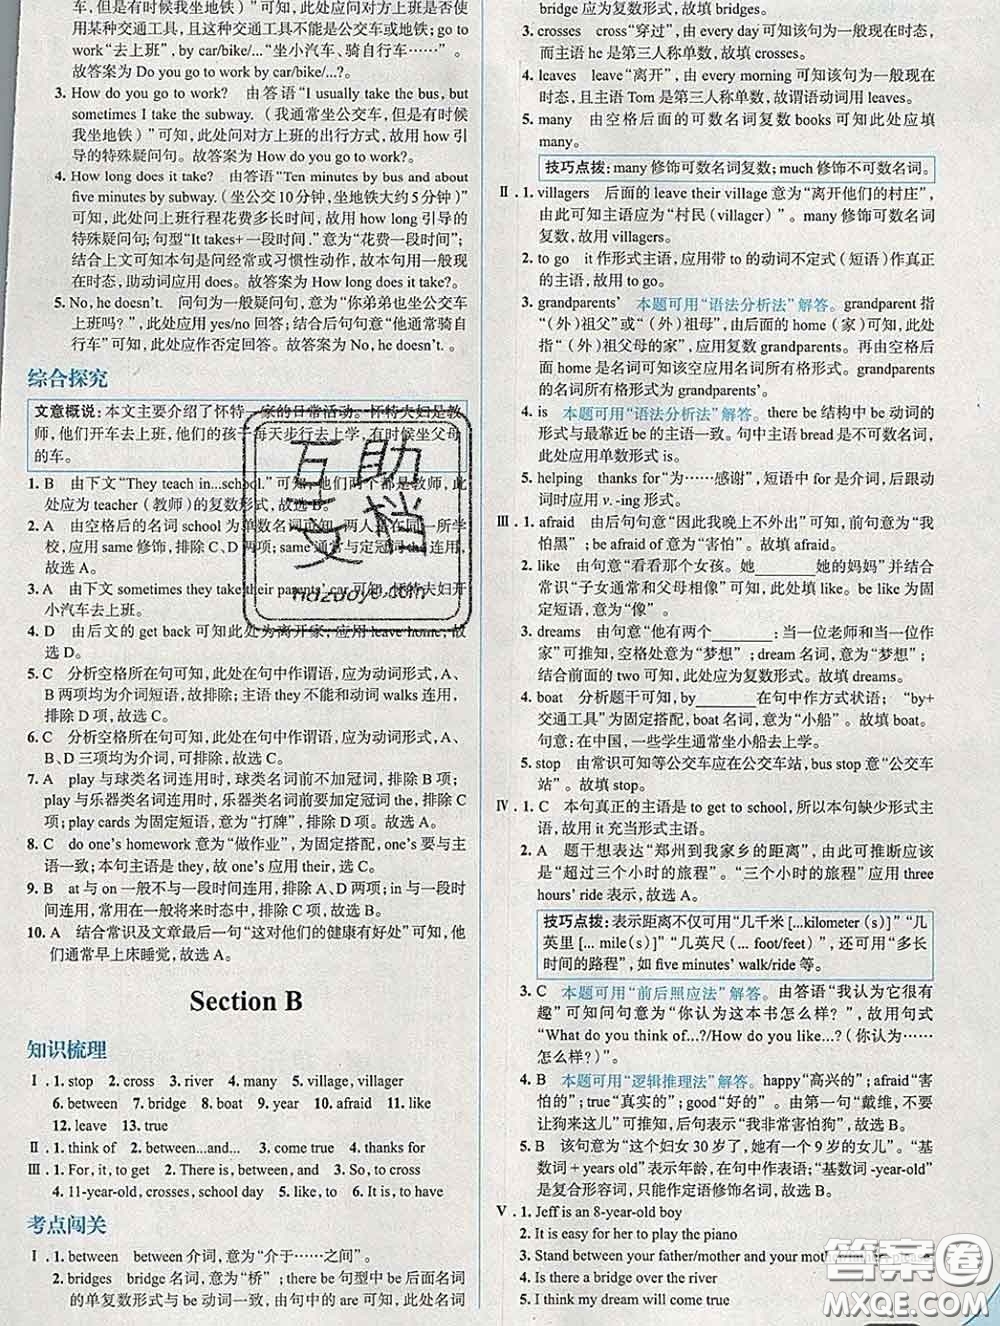 有时候我坐地铁）可知，此处应问对方上班是否
使用某种交通工具，且这种交通工具不能是公交车或地铁；go to
work“去上班”，by car/bike/...“坐小汽车、骑自行车……”。
故答案为 Do you go to work by car/bike/...?。
3. How do you go to work?　由答语“I usually take the bus, but
sometimes I take the subway.（我通常坐公交车，但是有时候
我坐地铁）可知，此处问对方上班的出行方式，故用 how 引
导的特殊疑问句。故答案为 How do you go to work?。
4. How long does it take?　由答语“Ten minutes by bus and about
five minutes by subway.（坐公交10分钟，坐地铁大约5分钟）”
可知，问上班行程花费多长时间，故用 how long 引导的
特殊疑问句；句型“It takes+一段时间.”意为“花费一段时间”；
结合上文可知本句是问经常或习惯性动作，故本句用一般现
在时态，助动词应用 does。故答案为 How long does it take?。
5. No, he doesn't.　问句为一般疑问句，意为“你弟弟也坐公交车
上班吗？”，此处应用 yes/no 回答；结合后句句意“他通常骑自
行车”可知，此处应作否定回答。故答案为 No, he doesn't.。
综合探究
文意概说：本文主要介绍了怀特一家的日常活动。怀特夫妇是教
师，他们开车去上班，他们的孩子每天步行去上学，有时候坐父母
的车。
1. B　由下文“They teach in...school.”可知，他们两个都是教师，此
处应为 teacher（教师）的复数形式，故选 B。
2. A　由空格后的名词 school 为单数名词可知，两人是在同一所学
校，应用 same 修饰，排除 C、D 两项；same 通常与定冠词 the 连用，
故选 A。
3. A　由下文 sometimes they take their parents' car 可知，怀特夫妇开
小汽车去上班。
4. D　由后文的 get back 可知此处为离开家，应用 leave home，故
选 D。
5. C　分析空格所在句可知，此处在句中作谓语，应为动词形式，A、
B 两项均为介词短语，故排除；主语 they 不能和动词 walks 连用，
排除 D 项，故选 C。
6. C　分析空格所在句可知，此处在句中作谓语，应为动词形式，A、
B、D 三项均为介词，可排除，故选 C。
7. A　play 与球类名词连用时，球类名词前不加冠词，排除 B 项；
play 与乐器类名词连用时，乐器类名词前要加定冠词 the，排除 C
项；play cards 为固定短语，意为“打牌”，排除 D 项，故选 A。
8. C　do one's homework 意为“做作业”，为固定搭配，one's 要与主
语一致；本句主语是 they，故 one's 应用 their，选 C。
9. B　at 与 on 一般不与一段时间连用，排除 A、D 两项；in 与一段时
间连用，常用在一般将来时态中，排除 C 项，故选 B。
10. A　结合常识及文章最后一句“这对他们的健康有好处”可知，他
们通常早上床睡觉，故选 A。
Section B
知识梳理
Ⅰ. 1. stop　2. cross　3. river　4. many　5. village, villager
6. between　7. bridge　8. boat　9. year　10. afraid　11. like
12. leave　13. true
Ⅱ. 1. think of　2. between...and...　3. come true　4. thanks for
Ⅲ. 1. For, it, to get　2. There is, between, and　3. So, to cross
4. 11-year-old, crosses, school day　5. like, to　6. It is, to have
考点闯关
Ⅰ. 1. between　between 介词，意为“介于……之间”。
2. bridges　bridge 名词，意为“桥”；there be 句型中 be 后面名词
的单复数形式与 be 动词一致，由句中的 are 可知，此处名词
bridge 应为复数形式，故填 bridges。
3. crosses　cross“穿过”，由 every day 可知该句为一般现在时态，
而主语 he 是第三人称单数，故填 crosses。
4. leaves　leave“离开”，由 every morning 可知该句为一般现在
时态，且主语 Tom 是第三人称单数，故谓语动词用 leaves。
5. many　由空格后面的可数名词复数 books 可知此处应填
many。
技巧点拨：many 修饰可数名词复数；much 修饰不可数名词。
Ⅱ. 1. villagers　后面的 leave their village 意为“离开他们的村庄”，
由此可知主语应为“村民（villager）”。many 修饰可数名词
复数，故用 villagers。
2. to go　it 作形式主语，应用带 to 的动词不定式（短语）作真正
的主语，故用 to go。
3. grandparents'　本题可用“语法分析法”解答。grandparent 指
“（外）祖父”或“（外）祖母”，由后面的 home（家）可知，此处
指“（外）祖父母的家”，应用复数 grandparents。再由空格后
面 home 是名词可知该空应用名词所有格形式。grandparents
的名词所有格形式为 grandparents'。
4. is　本题可用“语法分析法”解答。there be 结构中 be 动词的
形式与最靠近 be 的主语一致。句中主语 bread 是不可数名词，
故此处应用单数形式 is。
5. helping　thanks for“为……感谢”，短语中 for 是介词，后跟动
词时应用 v. -ing 形式。
Ⅲ. 1. afraid　由后句句意“因此我晚上不外出”可知，前句意为“我
怕黑”；be afraid of 意为“害怕”。故填 afraid。
2. like　由句意“看看那个女孩。她______她的妈妈”并结合
常识“子女通常和父母相像”可知，此处应填 like。be like 为
固定短语，意为“像”。
3. dreams　由句意“他有两个______：当一位老师和当一位作
家”可推知，空格处意为“梦想”；dream 名词，意为“梦想”；
结合前面的 two 可知，此处应为复数形式。故填 dreams。
4. boat　分析题干可知，by______在句中作方式状语；“by+
交通工具”为固定搭配，boat 名词，意为“小船”。故填 boat。
句意：在中国，一些学生通常坐小船去上学。
5. stop　由常识可知等公交车应在公交车站，bus stop 意“公交车
站”。故填 stop。
Ⅳ. 1. C　本句真正的主语是 to get to school，所以本句缺少形式主
语，故用 it 充当形式主语。
2. A　题干想表达“郑州到我家乡的距离”，由此可推断应该
是“超过三个小时的旅程”。“三个小时的旅程”应用 three
hours' ride 表示，故选 A。
技巧点拨：表示距离不仅可用“几千米 [...kilometer (s)]”“几
英里 [... mile(s)]”“几英尺（... foot/feet）”，还可用“多长
时间的路程”，如 five minutes' walk/ride 等。
3. C　本题可用“前后照应法”解答。由答语“我认为它很有
趣”可知问句意为“你认为这本书怎么样？”，故用句式
“What do you think of...?/How do you like...?（你认为……
怎么样？）”。
4. B　本题可用“逻辑推理法”解答。happy“高兴的”；afraid“害
怕的”；true“真实的”；good“好的”。由第一句“戴维，不要
让狗来这儿”可推知，后句表示“我非常害怕狗”，故选 B。
5. B　该句意为“这个妇女 30 岁了，她有一个 9 岁的女儿”。“基
数词 + years old”表示年龄，在句中作表语；“基数词 -year-old”
是复合形容词，只能作定语修饰名词，故选 B。
Ⅴ. 1. Jeff is an 8-year-old boy
2. It is easy for her to play the piano
3. Stand between your father/mother and your
4. Is there a bridge over the river
5. I think my dream will come true
互助文档
hdzuoye.com
答案圈
MXQE.COM